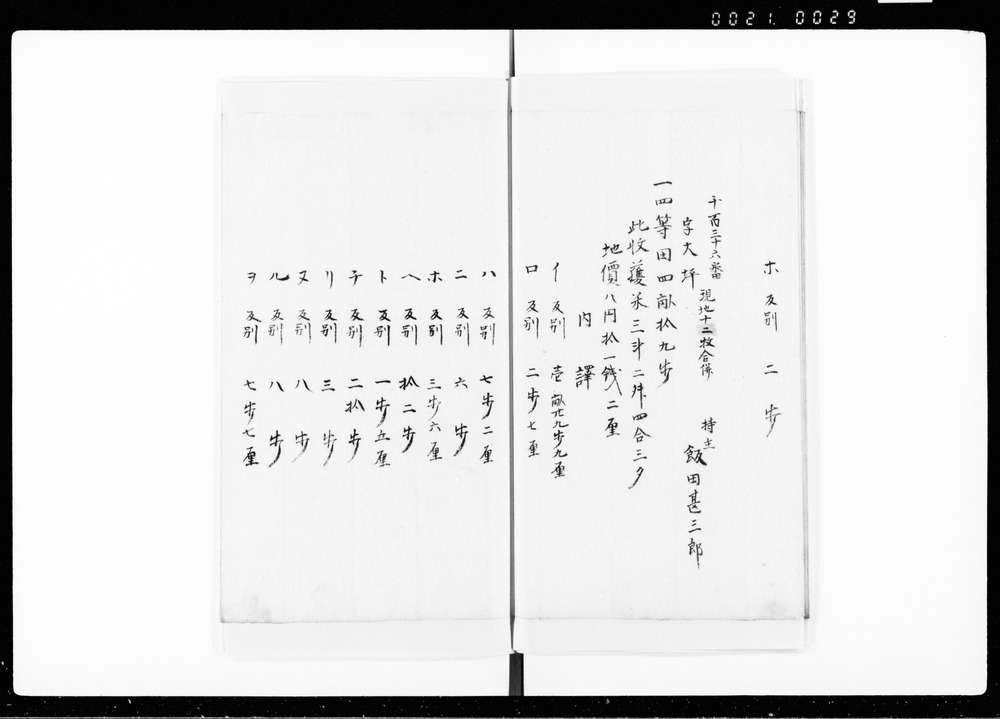 0021. 0029
ホ 反別 二歩
千百三十六番 現地十二枚合併 持主
字大坪 飯田甚三郎
一四等田四畝拾九歩
此收護米三斗二舛四合三夕
地價八円拾一錢二厘
内譯
イ 反別 壱畝廿九歩九厘
ロ 反別 二歩七厘
ハ 反別 七歩二厘
ニ 反別 六歩
ホ 反別 三歩六厘
ヘ 反別 拾二歩
ト 反別 一歩五厘
チ 反別 二拾歩
リ 反別 三歩
ヌ 反別 八歩
ル 反別 八歩
ヲ 反別 七歩七厘